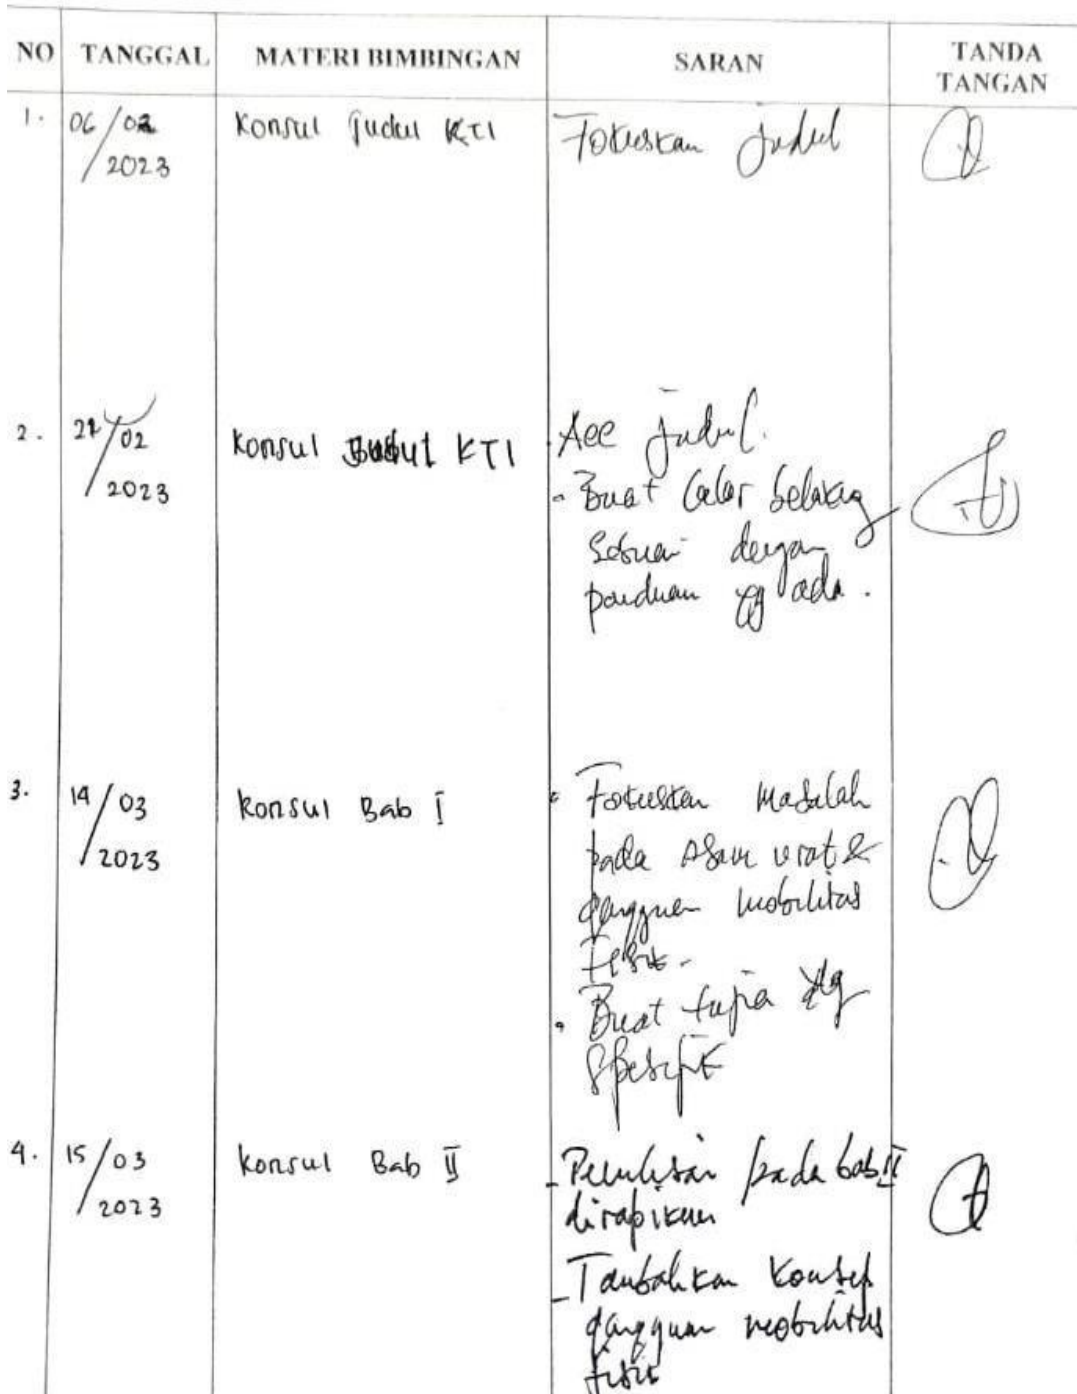 NO TANGGAL MATERI BIMBINGAN SARAN TANDA TANGAN
1. 06/02/2023 Konsul Judul KTI Fokuskan judul
2. /02/2023 Konsul Judul KTI Acc judul.
- Buat latar belakang
sesuai dengan
panduan yg ada.
3. 14/03/2023 Konsul Bab I Fokuskan masalah
pada Asam urat &
gangguan mobilitas
fisik.
Buat tujuan yg
spesifik
4. 15/03/2023 Konsul Bab II - Penulisan pada bab II
dirapikan
- Tambahkan konsep
gangguan mobilitas
fisik